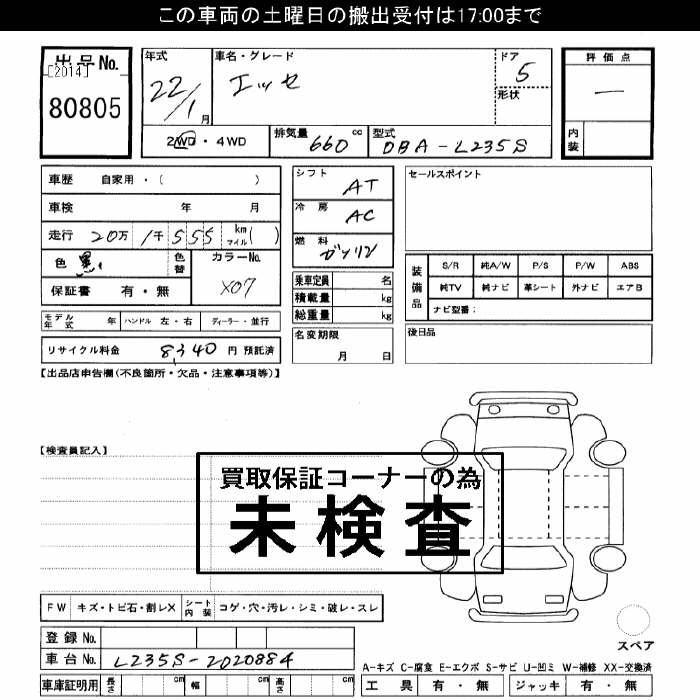 この車両の土曜日の搬出受付は17:00まで
出品No.
[2014]
80805
年式
22/1月
車名・グレード
エッセ
ドア
5
形状
評価点
―
内装
2WD・4WD
排気量 660 cc
型式 DBA-L235S
車歴 自家用・( )
車検 年 月
走行 20万 1千 555 km マイル( )
色 黒
色替
カラーNo.
X07
保証書 有・無
シフト
AT
冷房
AC
燃料
ガソリン
乗車定員 名
積載量 kg
総重量 kg
セールスポイント
装備品
S/R 純A/W P/S P/W ABS
純TV 純ナビ 革シート 外ナビ エアB
ナビ型番:
モデル年式 年 ハンドル 左・右 ディーラー・並行
リサイクル料金 8,340 円 預託済
名変期限
月 日
後日品
【出品店申告欄(不良箇所・欠品・注意事項等)】
【検査員記入】
買取保証コーナーの為
未検査
FW キズ・トビ石・割レX シート内装 コゲ・穴・汚レ・シミ・破レ・スレ
登録No.
車台No. L235S-2020884
車庫証明用 長さ cm 幅 cm 高さ cm
スペア
A-キズ C-腐食 E-エクボ S-サビ U-凹ミ W-補修 XX-交換済
工具 有・無 ジャッキ 有・無